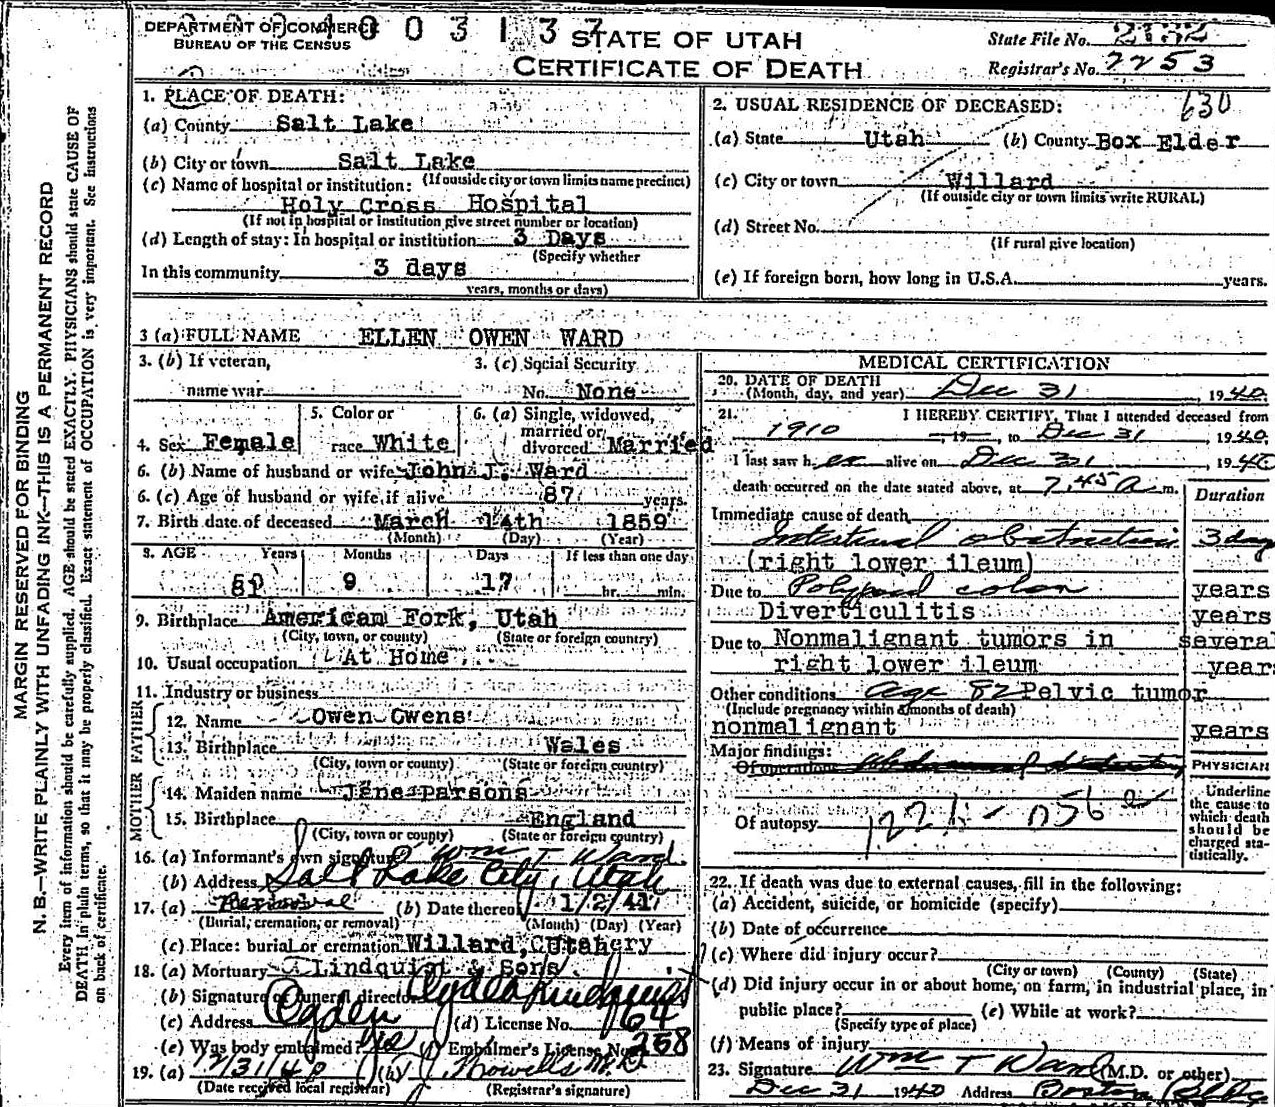 DEPARTMENT OF COMMERCE
BUREAU OF THE CENSUS
003137
STATE OF UTAH
CERTIFICATE OF DEATH
State File No. 2132
Registrar's No. 2253
630
MARGIN RESERVED FOR BINDING
N. B.—WRITE PLAINLY WITH UNFADING INK—THIS IS A PERMANENT RECORD
Every item of information should be carefully supplied. AGE should be stated EXACTLY. PHYSICIANS should state CAUSE OF
DEATH in plain terms, so that it may be properly classified. Exact statement of OCCUPATION is very important. See instructions
on back of certificate.
1. PLACE OF DEATH:
(a) County Salt Lake
(b) City or town Salt Lake
(If outside city or town limits name precinct)
(c) Name of hospital or institution:
Holy Cross Hospital
(If not in hospital or institution give street number or location)
(d) Length of stay: In hospital or institution 3 Days
(Specify whether
In this community 3 days
years, months or days)
2. USUAL RESIDENCE OF DECEASED:
(a) State Utah (b) County Box Elder
(c) City or town Willard
(If outside city or town limits write RURAL)
(d) Street No.
(If rural give location)
(e) If foreign born, how long in U.S.A. years.
3 (a) FULL NAME ELLEN OWEN WARD
3. (b) If veteran,
name war
3. (c) Social Security
No. None
4. Sex Female
5. Color or
race White
6. (a) Single, widowed,
married or
divorced Married
6. (b) Name of husband or wife John J. Ward
6. (c) Age of husband or wife, if alive 87 years.
7. Birth date of deceased March 14th 1859
(Month) (Day) (Year)
8. AGE Years Months Days If less than one day
81 9 17 hr. min.
9. Birthplace American Fork, Utah
(City, town, or county) (State or foreign country)
10. Usual occupation At Home
11. Industry or business
FATHER
12. Name Owen Owens
13. Birthplace Wales
(City, town, or county) (State or foreign country)
MOTHER
14. Maiden name Jane Parsons
15. Birthplace England
(City, town or county) (State or foreign country)
16. (a) Informant's own signature Wm T Ward
(b) Address Salt Lake City, Utah
17. (a) Removal (b) Date thereof 1/2/41
(Burial, cremation, or removal) (Month) (Day) (Year)
(c) Place: burial or cremation Willard, Utah
18. (a) Mortuary Lindquist & Sons
(b) Signature of funeral director Clyde Lindquist
(c) Address Ogden (d) License No. 64
(e) Was body embalmed? yes Embalmer's License No. 258
19. (a) 12/31/40 (b)
(Date received local registrar) (Registrar's signature)
MEDICAL CERTIFICATION
20. DATE OF DEATH
(Month, day, and year) Dec 31, 1940.
21. I HEREBY CERTIFY, That I attended deceased from
1910, 19—, to Dec 31 1940,
I last saw h er alive on Dec 31, 1940
death occurred on the date stated above, at 7.45 a m.
Duration
Immediate cause of death
Intestinal obstruction 3 day
(right lower ileum)
Due to Polypoid colon years
Diverticulitis years
Due to Nonmalignant tumors in several
right lower ileum years
Other conditions age 82 Pelvic tumor
(Include pregnancy within 3 months of death)
nonmalignant years
Major findings:
Of operations
Of autopsy
PHYSICIAN
Underline
the cause to
which death
should be
charged sta-
tistically.
22. If death was due to external causes, fill in the following:
(a) Accident, suicide, or homicide (specify)
(b) Date of occurrence
(c) Where did injury occur?
(City or town) (County) (State)
(d) Did injury occur in or about home, on farm, in industrial place, in
public place? (e) While at work?
(Specify type of place)
(f) Means of injury
23. Signature Wm T Ward (M.D. or other)
Dec 31 1940 Address Boston Bldg